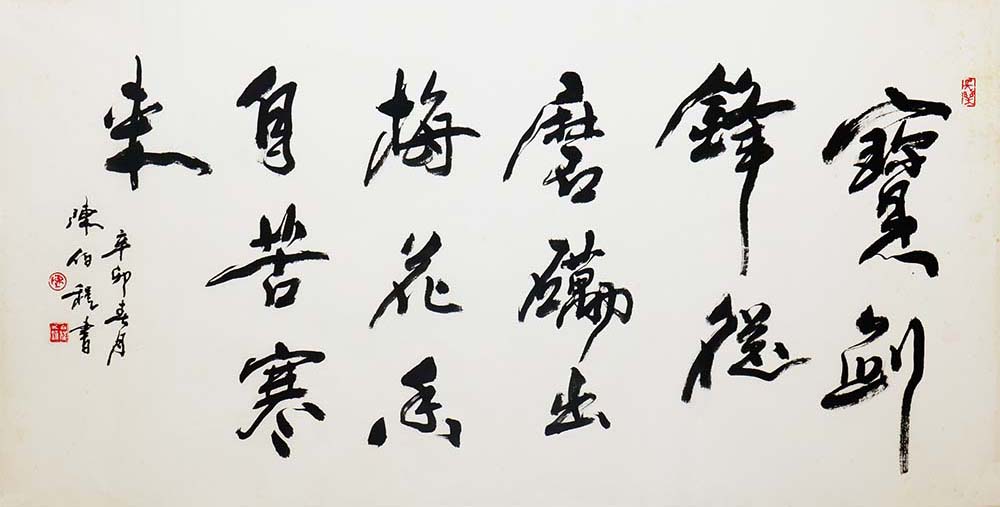 寶劍
鋒從
磨礪出
梅花香
自苦寒
來
辛卯春月
陳伯程書